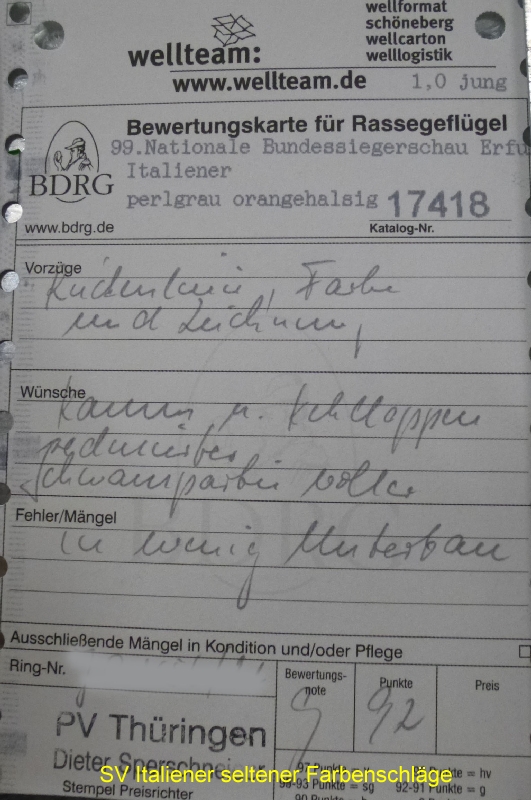 wellteam:
wellformat
schöneberg
wellcarton
welllogistik
www.wellteam.de
1,0 jung
BDRG
www.bdrg.de
Bewertungskarte für Rassegeflügel
99.Nationale Bundessiegerschau Erfu
Italiener
perlgrau orangehalsig 17418
Katalog-Nr.
Vorzüge
Rückenlinie, Farbe
und Zeichnung
Wünsche
Kamm u. Kehllappen
reduzierter
Schwanzpartie voller
Fehler/Mängel
zu wenig Unterbau
Ausschließende Mängel in Kondition und/oder Pflege
Ring-Nr.
Bewertungs-
note
Punkte
Preis
g
92
PV Thüringen
Dieter
Stempel Preisrichter
97 Punkte = v
Punkte = hv
Punkte = sg
92-91 Punkte = g
90 Punkte
SV Italiener seltener Farbenschläge